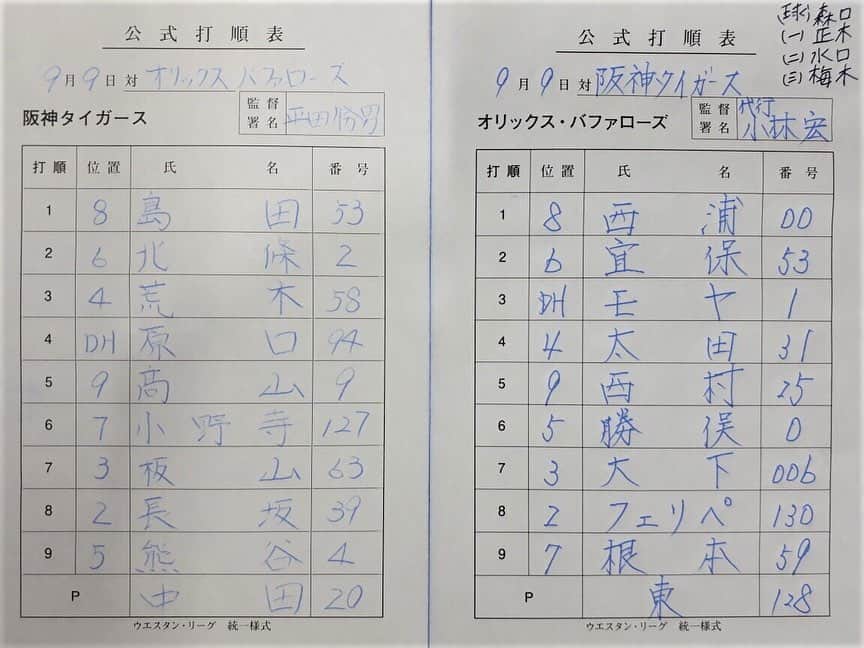 公式打順表
9月9日 対 オリックスバファローズ
阪神タイガース 監督署名 平田勝男
打順 位置 氏名 番号
1 8 島田 53
2 6 北條 2
3 4 荒木 58
4 DH 原口 94
5 9 高山 9
6 7 小野寺 127
7 3 板山 63
8 2 長坂 39
9 5 熊谷 4
P 中田 20
ウエスタン・リーグ 統一様式
(球) 森口
(一) 正木
(二) 水口
(三) 梅木
公式打順表
9月9日 対 阪神タイガース
オリックス・バファローズ 監督署名 代行 小林宏
打順 位置 氏名 番号
1 8 西浦 00
2 6 宜保 53
3 DH モヤ 1
4 4 太田 31
5 9 西村 25
6 5 勝俣 0
7 3 大下 006
8 2 フェリペ 130
9 7 根本 59
P 東 128
ウエスタン・リーグ 統一様式